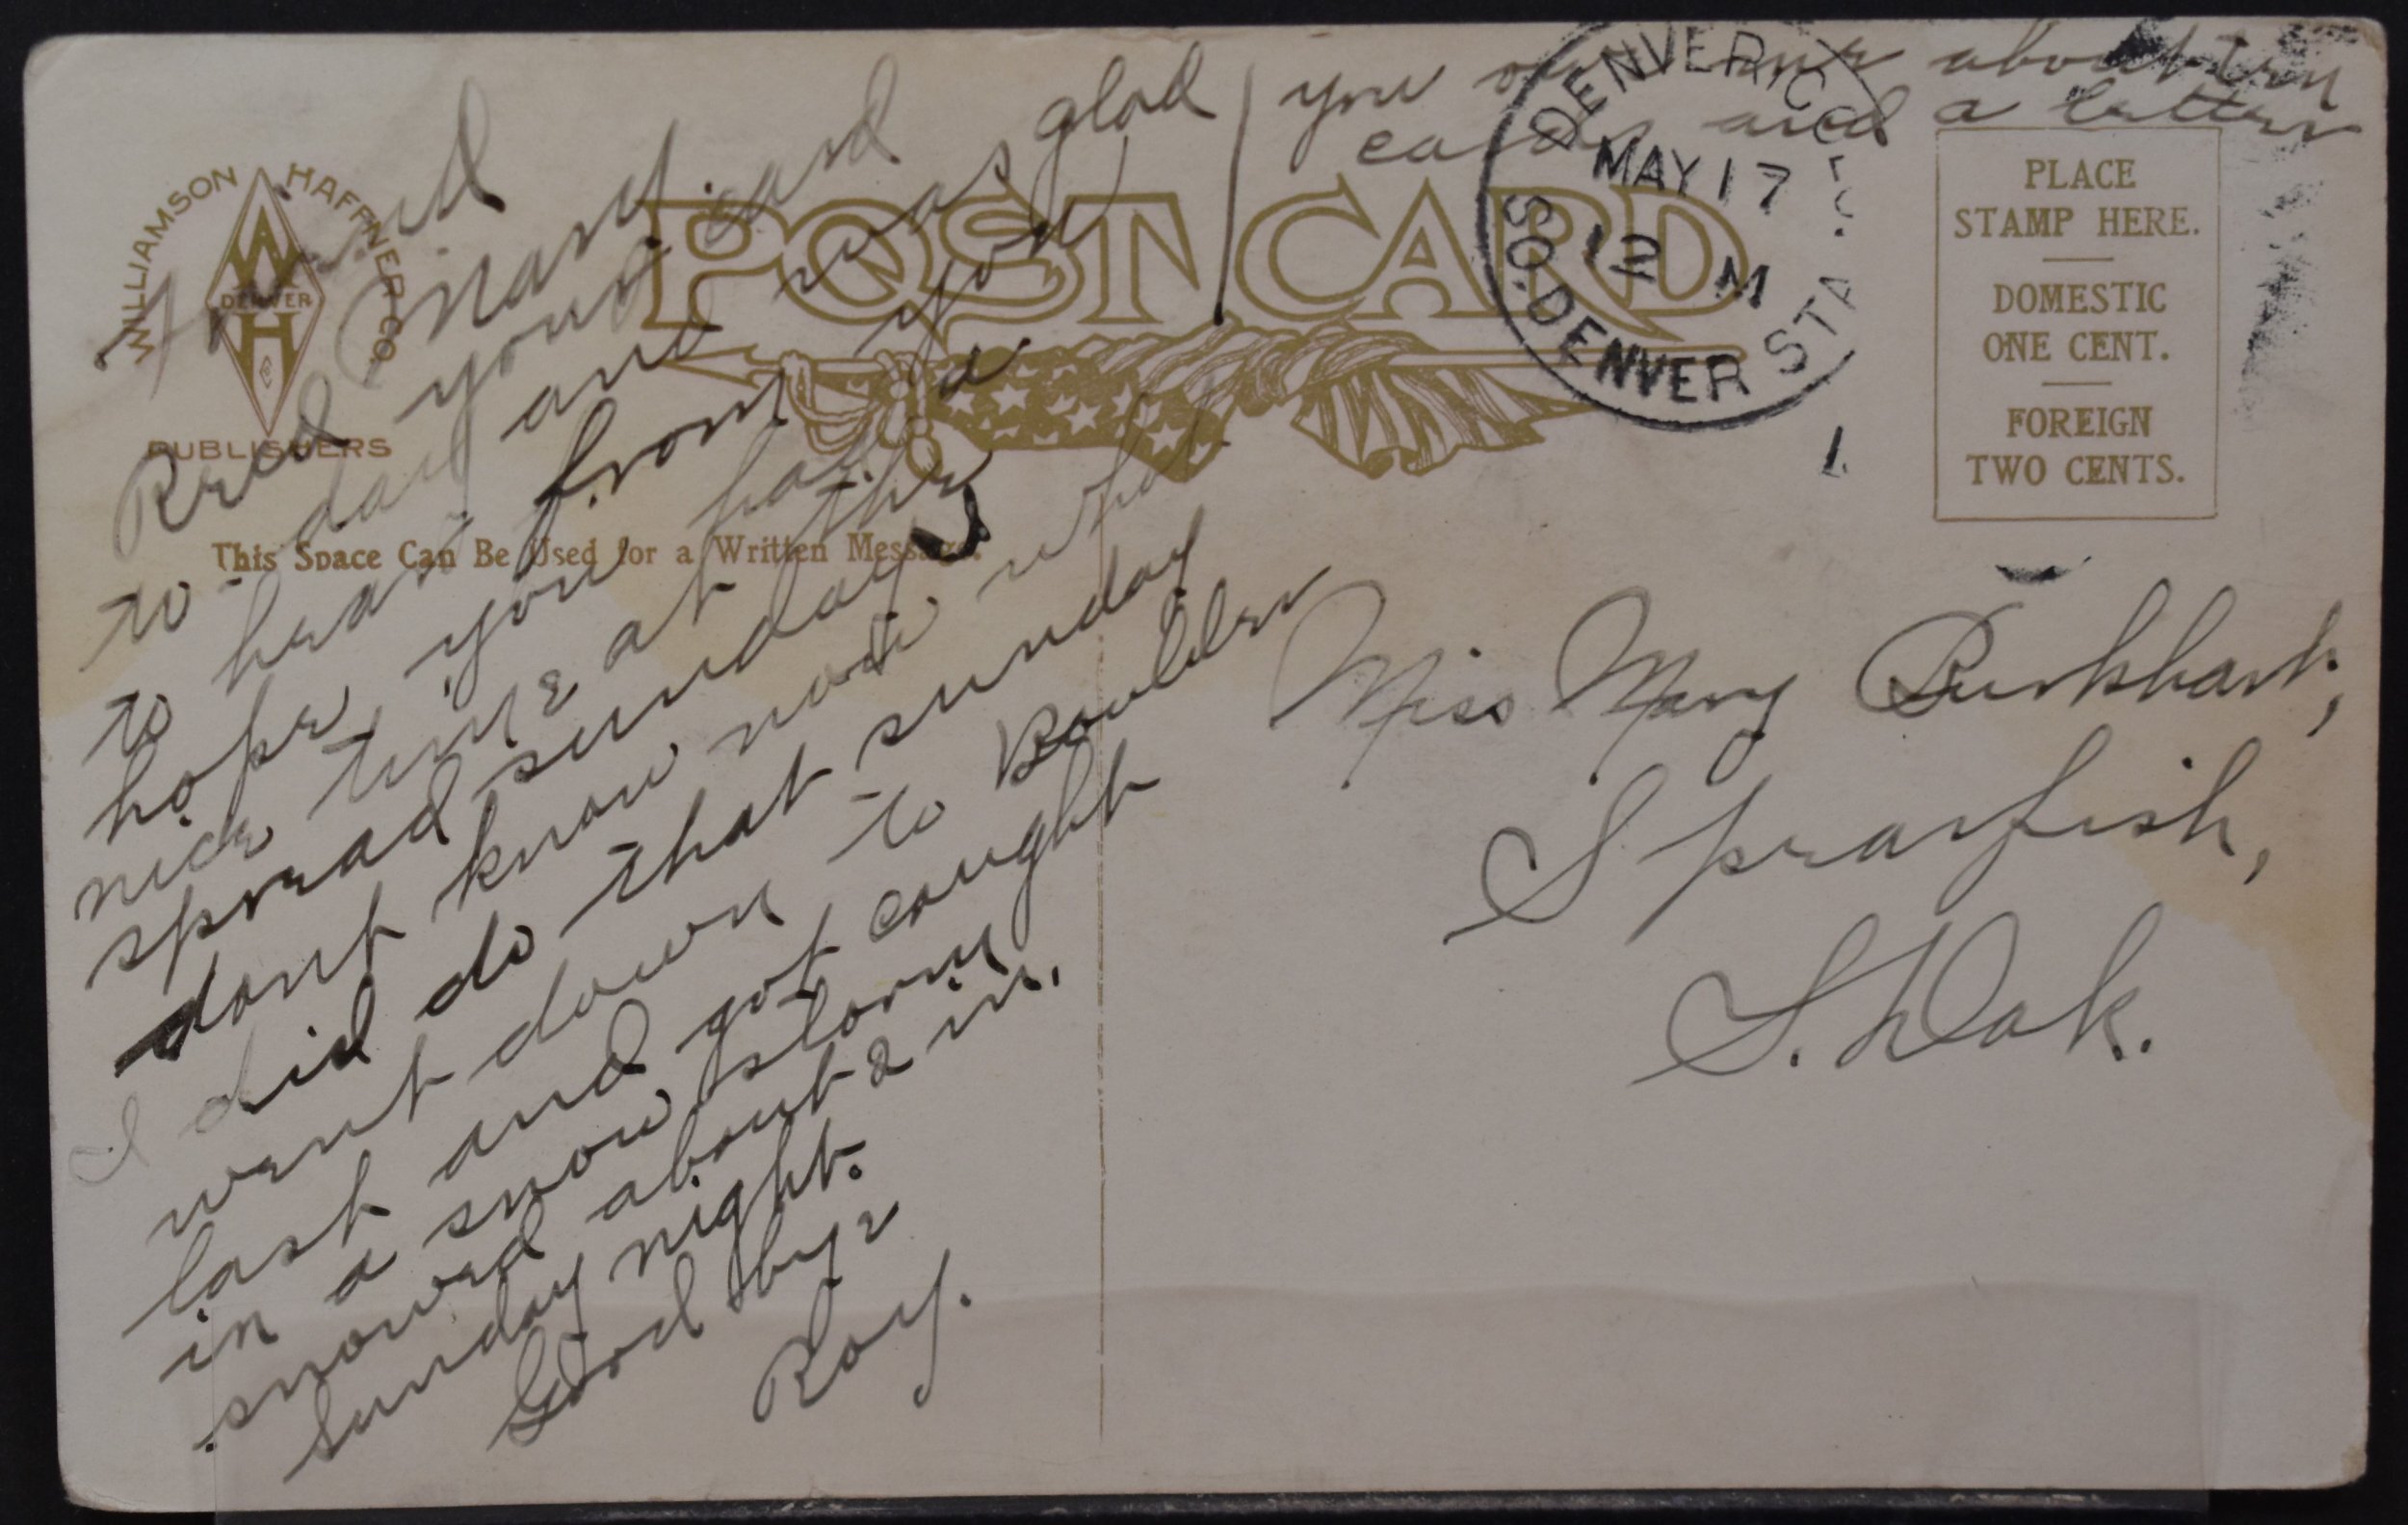 you owe me about ten
cards and a letter
WILLIAMSON HAFFNER CO.
W
DENVER
H
PUBLISHERS
POST CARD
This Space Can Be Used for a Written Message.
DENVER, COLO.
MAY 17
12 M
SO. DENVER STA.
PLACE
STAMP HERE.
DOMESTIC
ONE CENT.
FOREIGN
TWO CENTS.
Friend
Mary.
Recd your card
to-day and was glad
to hear from you
hope you had a
nice time at the
spread sunday
dont know now what
I did do that sunday
went down to Boulder
last and got caught
in a snow storm
snowed about 2 in.
Sunday night.
Good bye
Roy.
Miss Mary Burkhart,
Spearfish,
S. Dak.